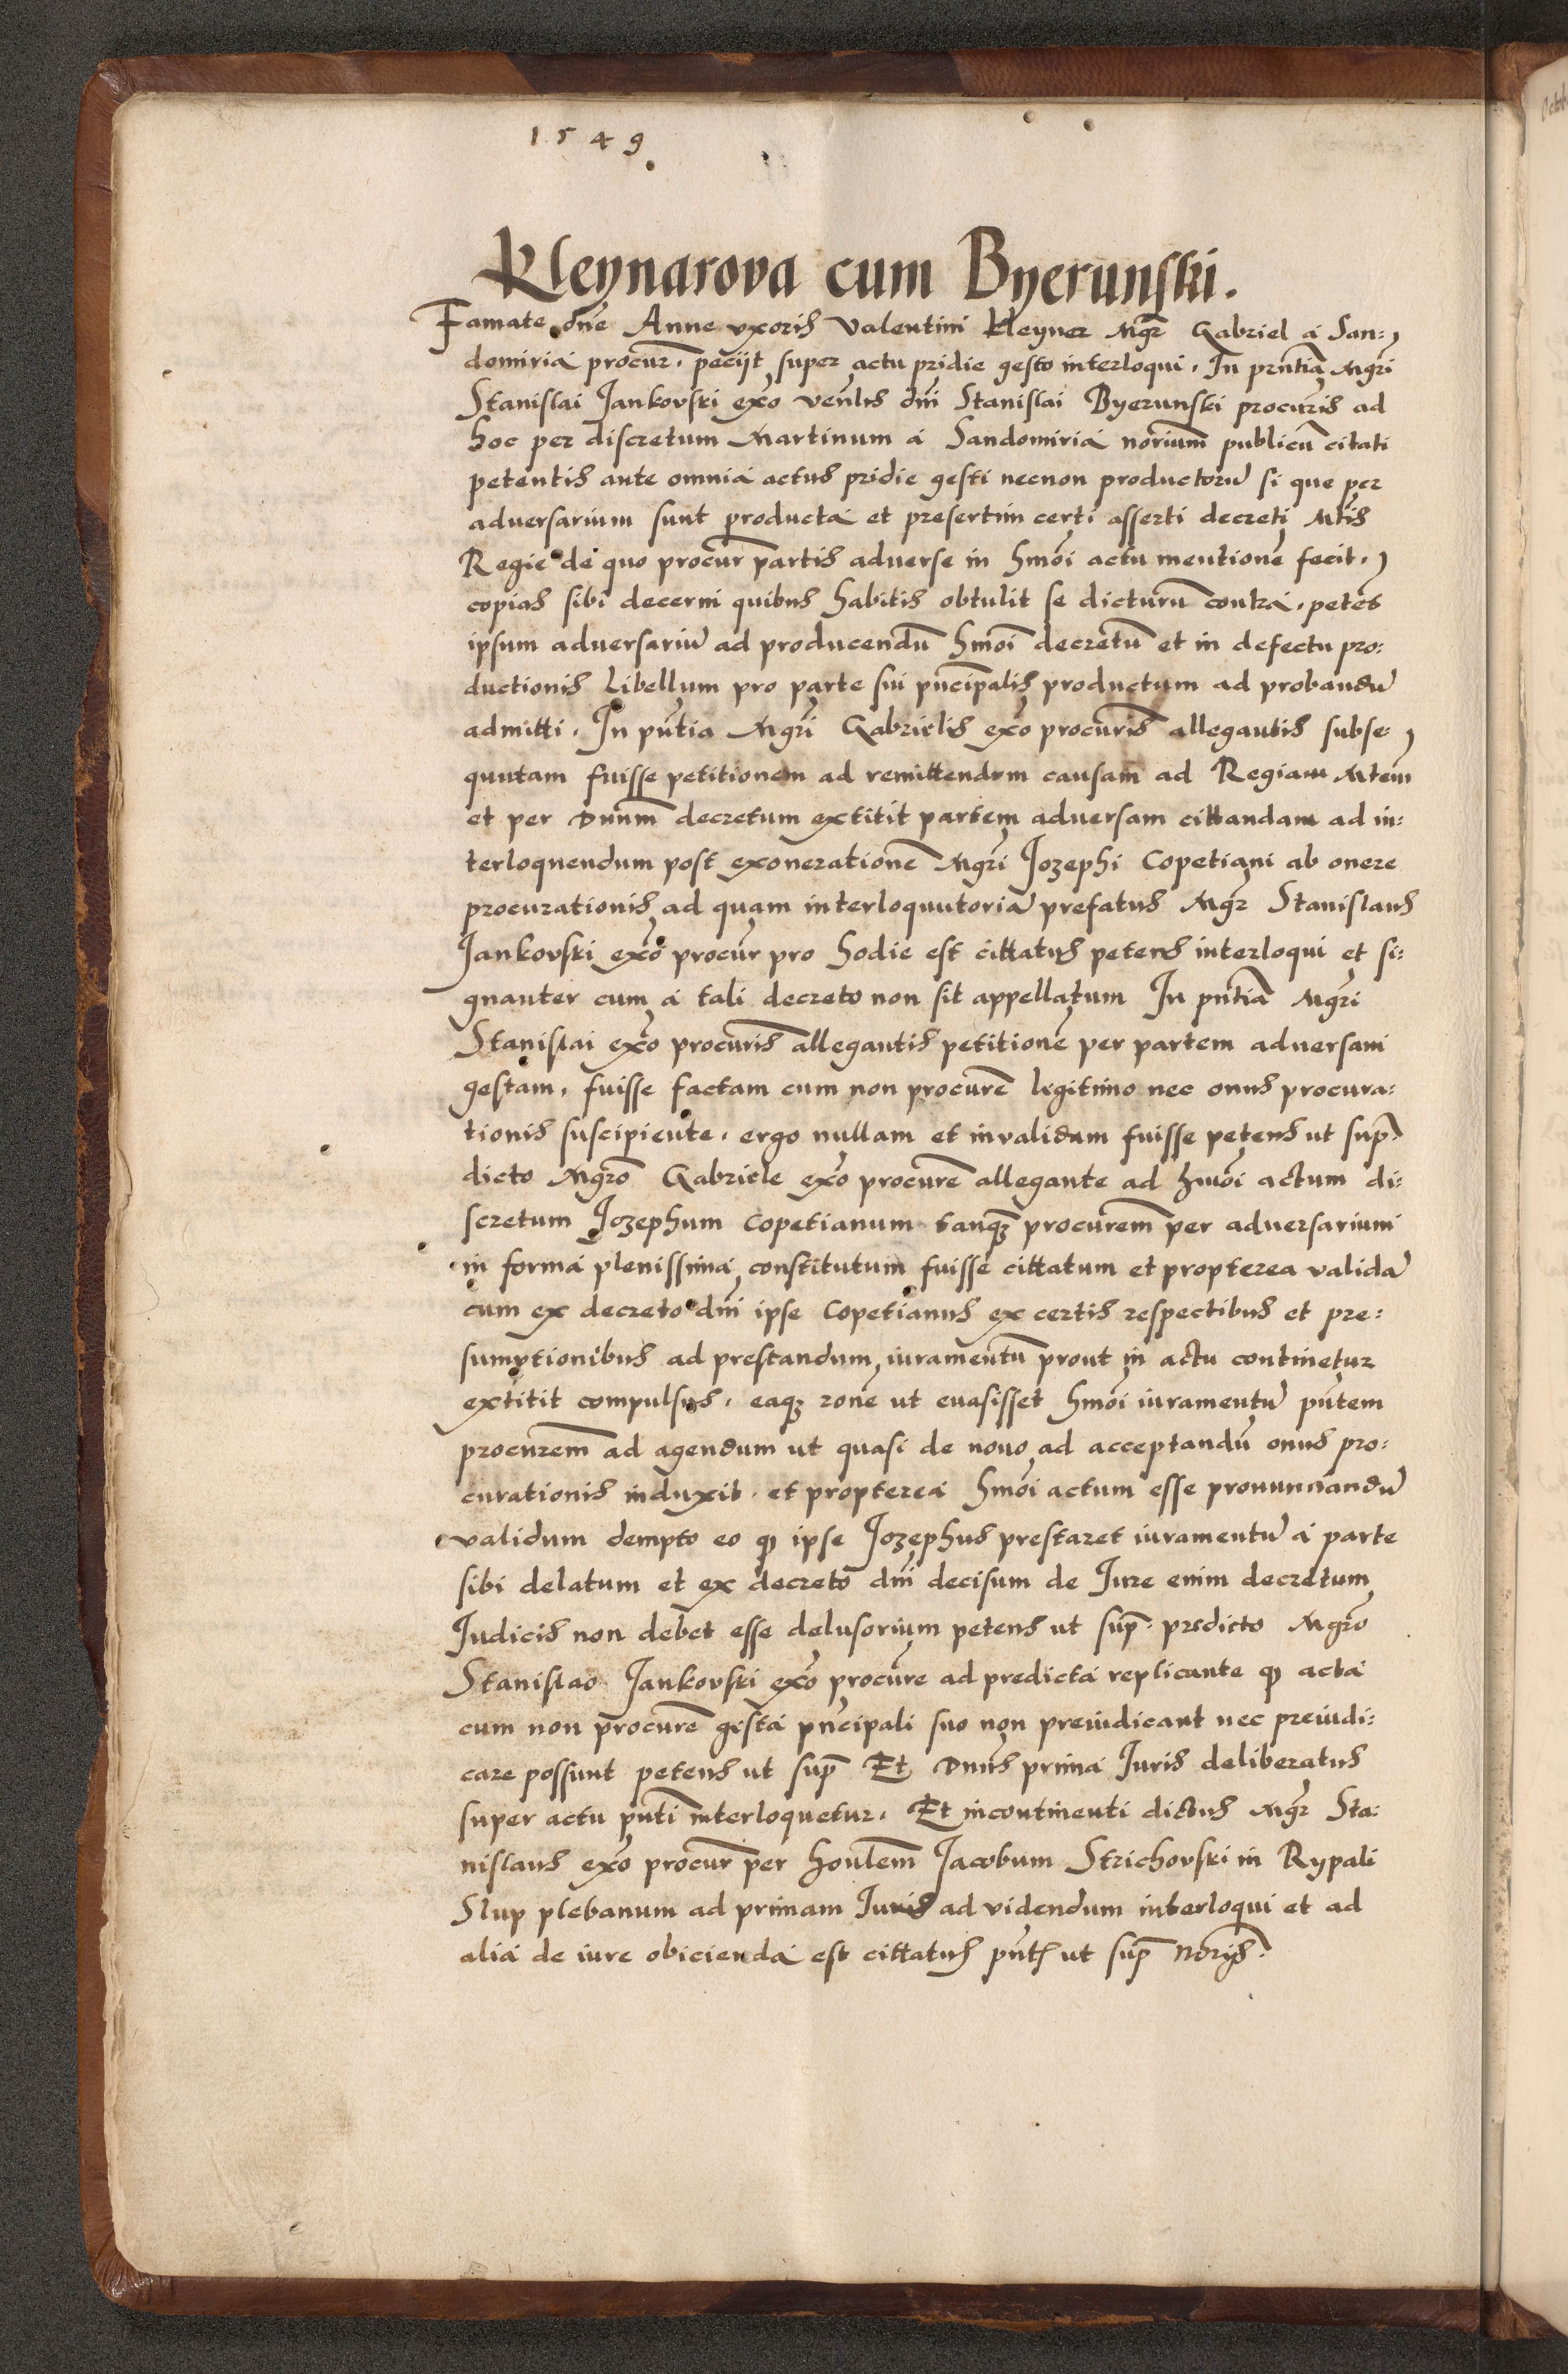 1549
Kleynarova cum Byerunski.
Famate dne Anne uxoris Valentini Kleyner Mgr Gabriel a San-
domiria procur. peciit super actu pridie gesto interloqui. In pntia Mgri
Stanislai Jankovski exo venlis dni Stanislai Byerunski procuris ad
hoc per discretum Martinum a Sandomiria norium publicu citati
petentis ante omnia actus pridie gesti necnon productoru si que per
adversarium sunt producta et presertim certi asserti decreti Mtis
Regie de quo procur partis adverse in hmoi actu mentione fecit.
copias sibi decerni quibus habitis obtulit se dicturu contra. petes
ipsum adversariu ad producendu hmoi decretu et in defectu pro:
ductionis Libellum pro parte sui pncipalis productum ad probandu
admitti. In pntia Mgri Gabrielis exo procuris allegantis subse
quutam fuisse petitionem ad remittendum causam ad Regiam Mtem
et per Dnum decretum extitit partem adversam cittandam ad in:
terloquendum post exoneratione Mgri Jozephi Copetiani ab onere
procurationis ad quam interloquutoria prefatus Mgr Stanislaus
Jankovski exo procur pro hodie est cittatus petens interloqui et si:
gnanter cum a tali decreto non sit appellatum In pntia Mgri
Stanislai exo procuris allegantis petitione per partem adversam
gestam, fuisse factam cum non procure legitimo nec onus procura:
tionis suscipiente. ergo nullam et invalidam fuisse petens ut sup
dicto Mgro Gabriele exo procure allegante ad hmoi actum di:
scretum Jozephum Copetianum tanq procurem per adversarium
in forma plenissima constitutum fuisse cittatum et propterea valida
cum ex decreto dni ipse Copetianus ex certis respectibus et pre:
sumptionibus ad prestandum iuramentu prout in actu continetur
extitit compulsus. eaq rone ut evasisset hmoi iuramentu pntem
procurem ad agendum ut quasi de novo ad acceptandu onus pro:
curationis induxit. et propterea hmoi actum esse pronunciandu
validum dempto eo q ipse Jozephus prestaret iuramentu a parte
sibi delatum et ex decreto dni decisum de Jure enim decretum
Judicis non debet esse delusorium petens ut sup. predicto Mgro
Stanislao Jankovski exo procure ad predicta replicante q acta
cum non procure gesta pncipali suo non preiudicant nec preiudi:
care possunt petens ut sup Et Dnus prima Juris deliberatus
super actu pnti interloquetur. Et incontinenti dictus Mgr Sta:
nislaus exo procur per honlem Jacobum Strichovski in Rypali
Slup plebanum ad primam Juris ad videndum interloqui et ad
alia de iure obicienda est cittatus pntb ut sup Noris.